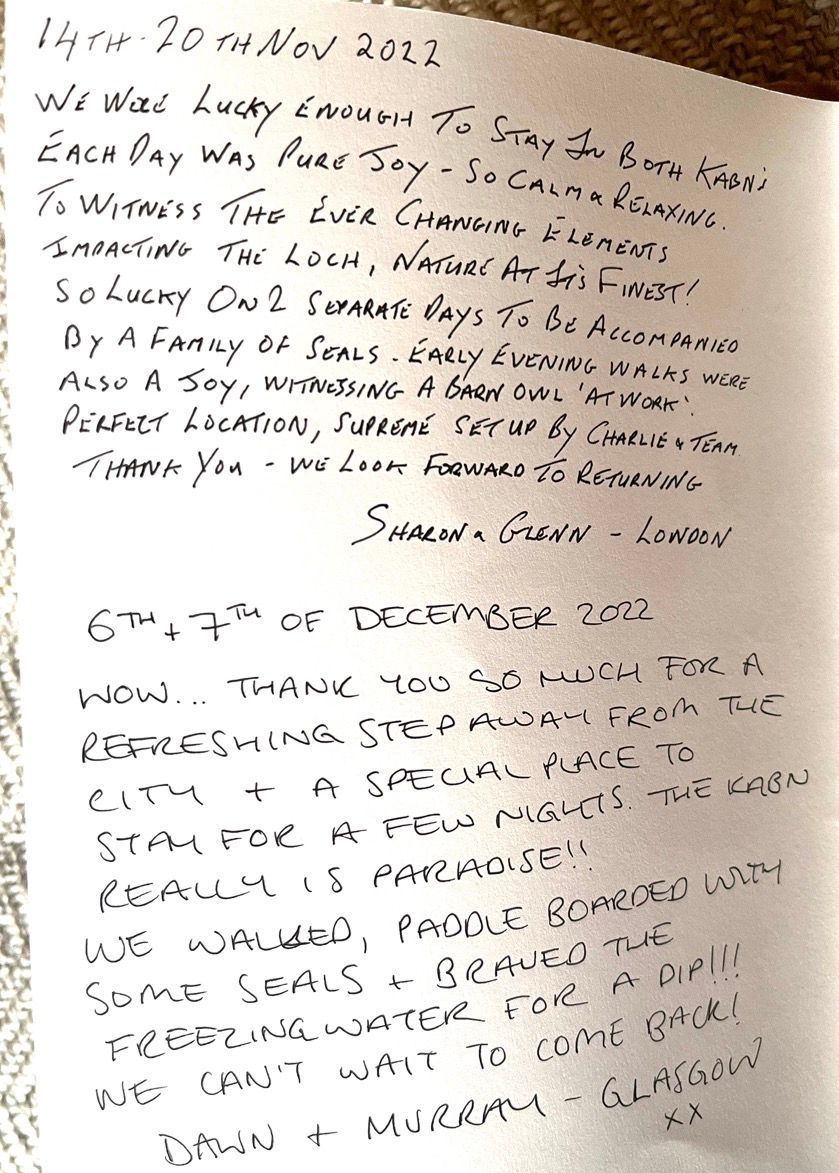 14TH-20TH NOV 2022
WE WERE LUCKY ENOUGH TO STAY IN BOTH KABN'S
EACH DAY WAS PURE JOY - SO CALM & RELAXING.
TO WITNESS THE EVER CHANGING ELEMENTS
IMPACTING THE LOCH, NATURE AT ITS FINEST!
SO LUCKY ON 2 SEPARATE DAYS TO BE ACCOMPANIED
BY A FAMILY OF SEALS. EARLY EVENING WALKS WERE
ALSO A JOY, WITNESSING A BARN OWL 'AT WORK'.
PERFECT LOCATION, SUPREME SET UP BY CHARLIE & TEAM
THANK YOU - WE LOOK FORWARD TO RETURNING
SHARON & GLENN - LONDON
6TH + 7TH OF DECEMBER 2022
WOW... THANK YOU SO MUCH FOR A
REFRESHING STEP AWAY FROM THE
CITY + A SPECIAL PLACE TO
STAY FOR A FEW NIGHTS. THE KABN
REALLY IS PARADISE!!
WE WALKED, PADDLE BOARDED WITH
SOME SEALS + BRAVED THE
FREEZING WATER FOR A DIP!!!
WE CAN'T WAIT TO COME BACK!
DAWN + MURRAY - GLASGOW
XX